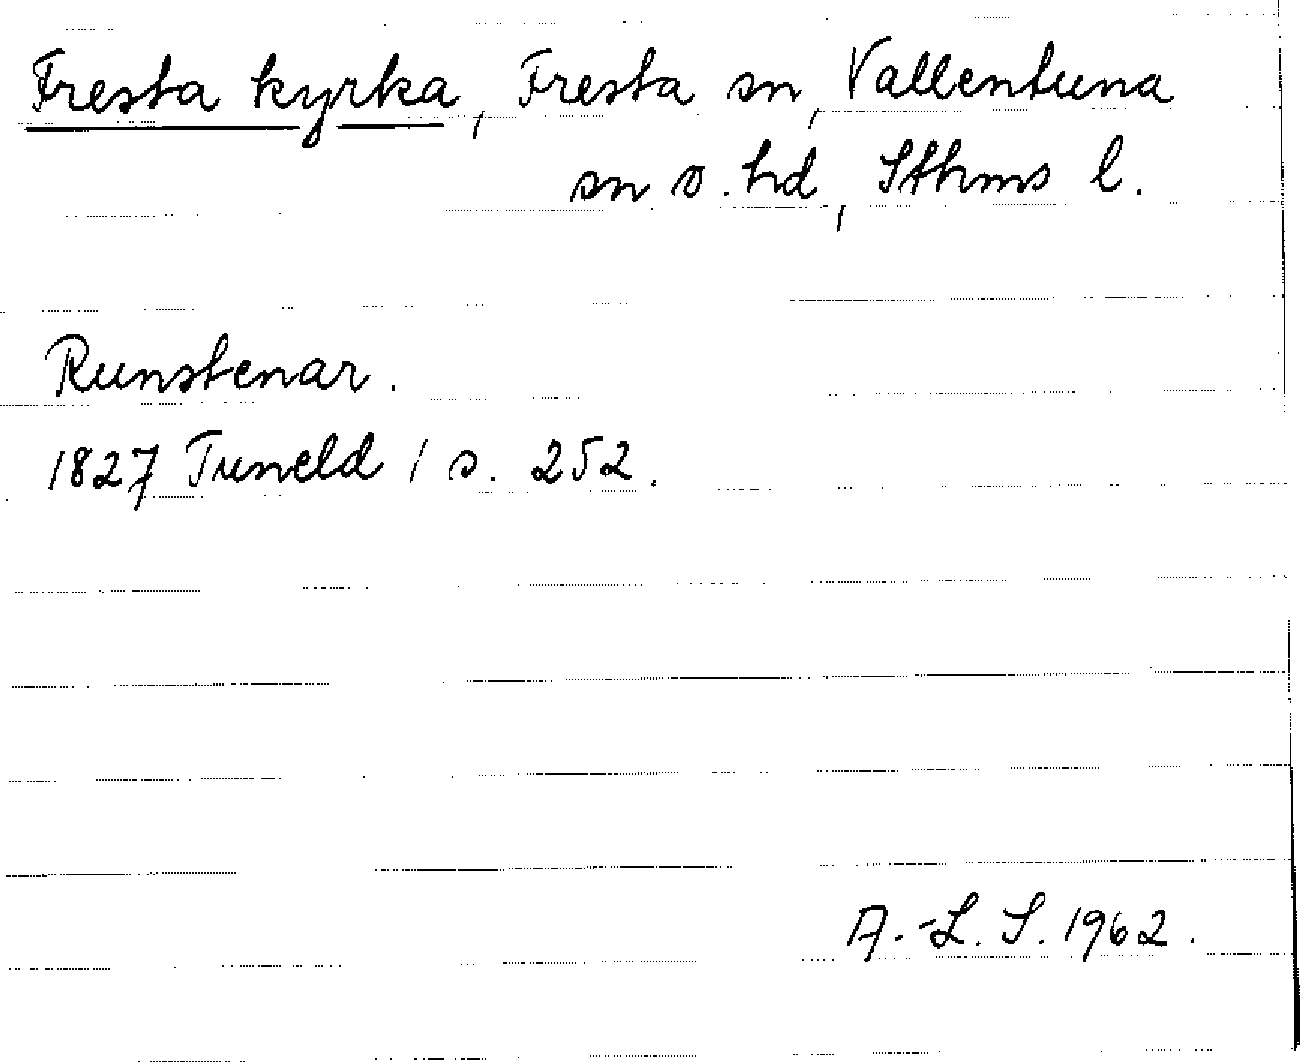 Fresta kyrka, Fresta sn, Vallentuna
sn o. hd, Sthms l.
Runstenar.
1827 Tuneld 1 s. 252.
A.-L. S. 1962.